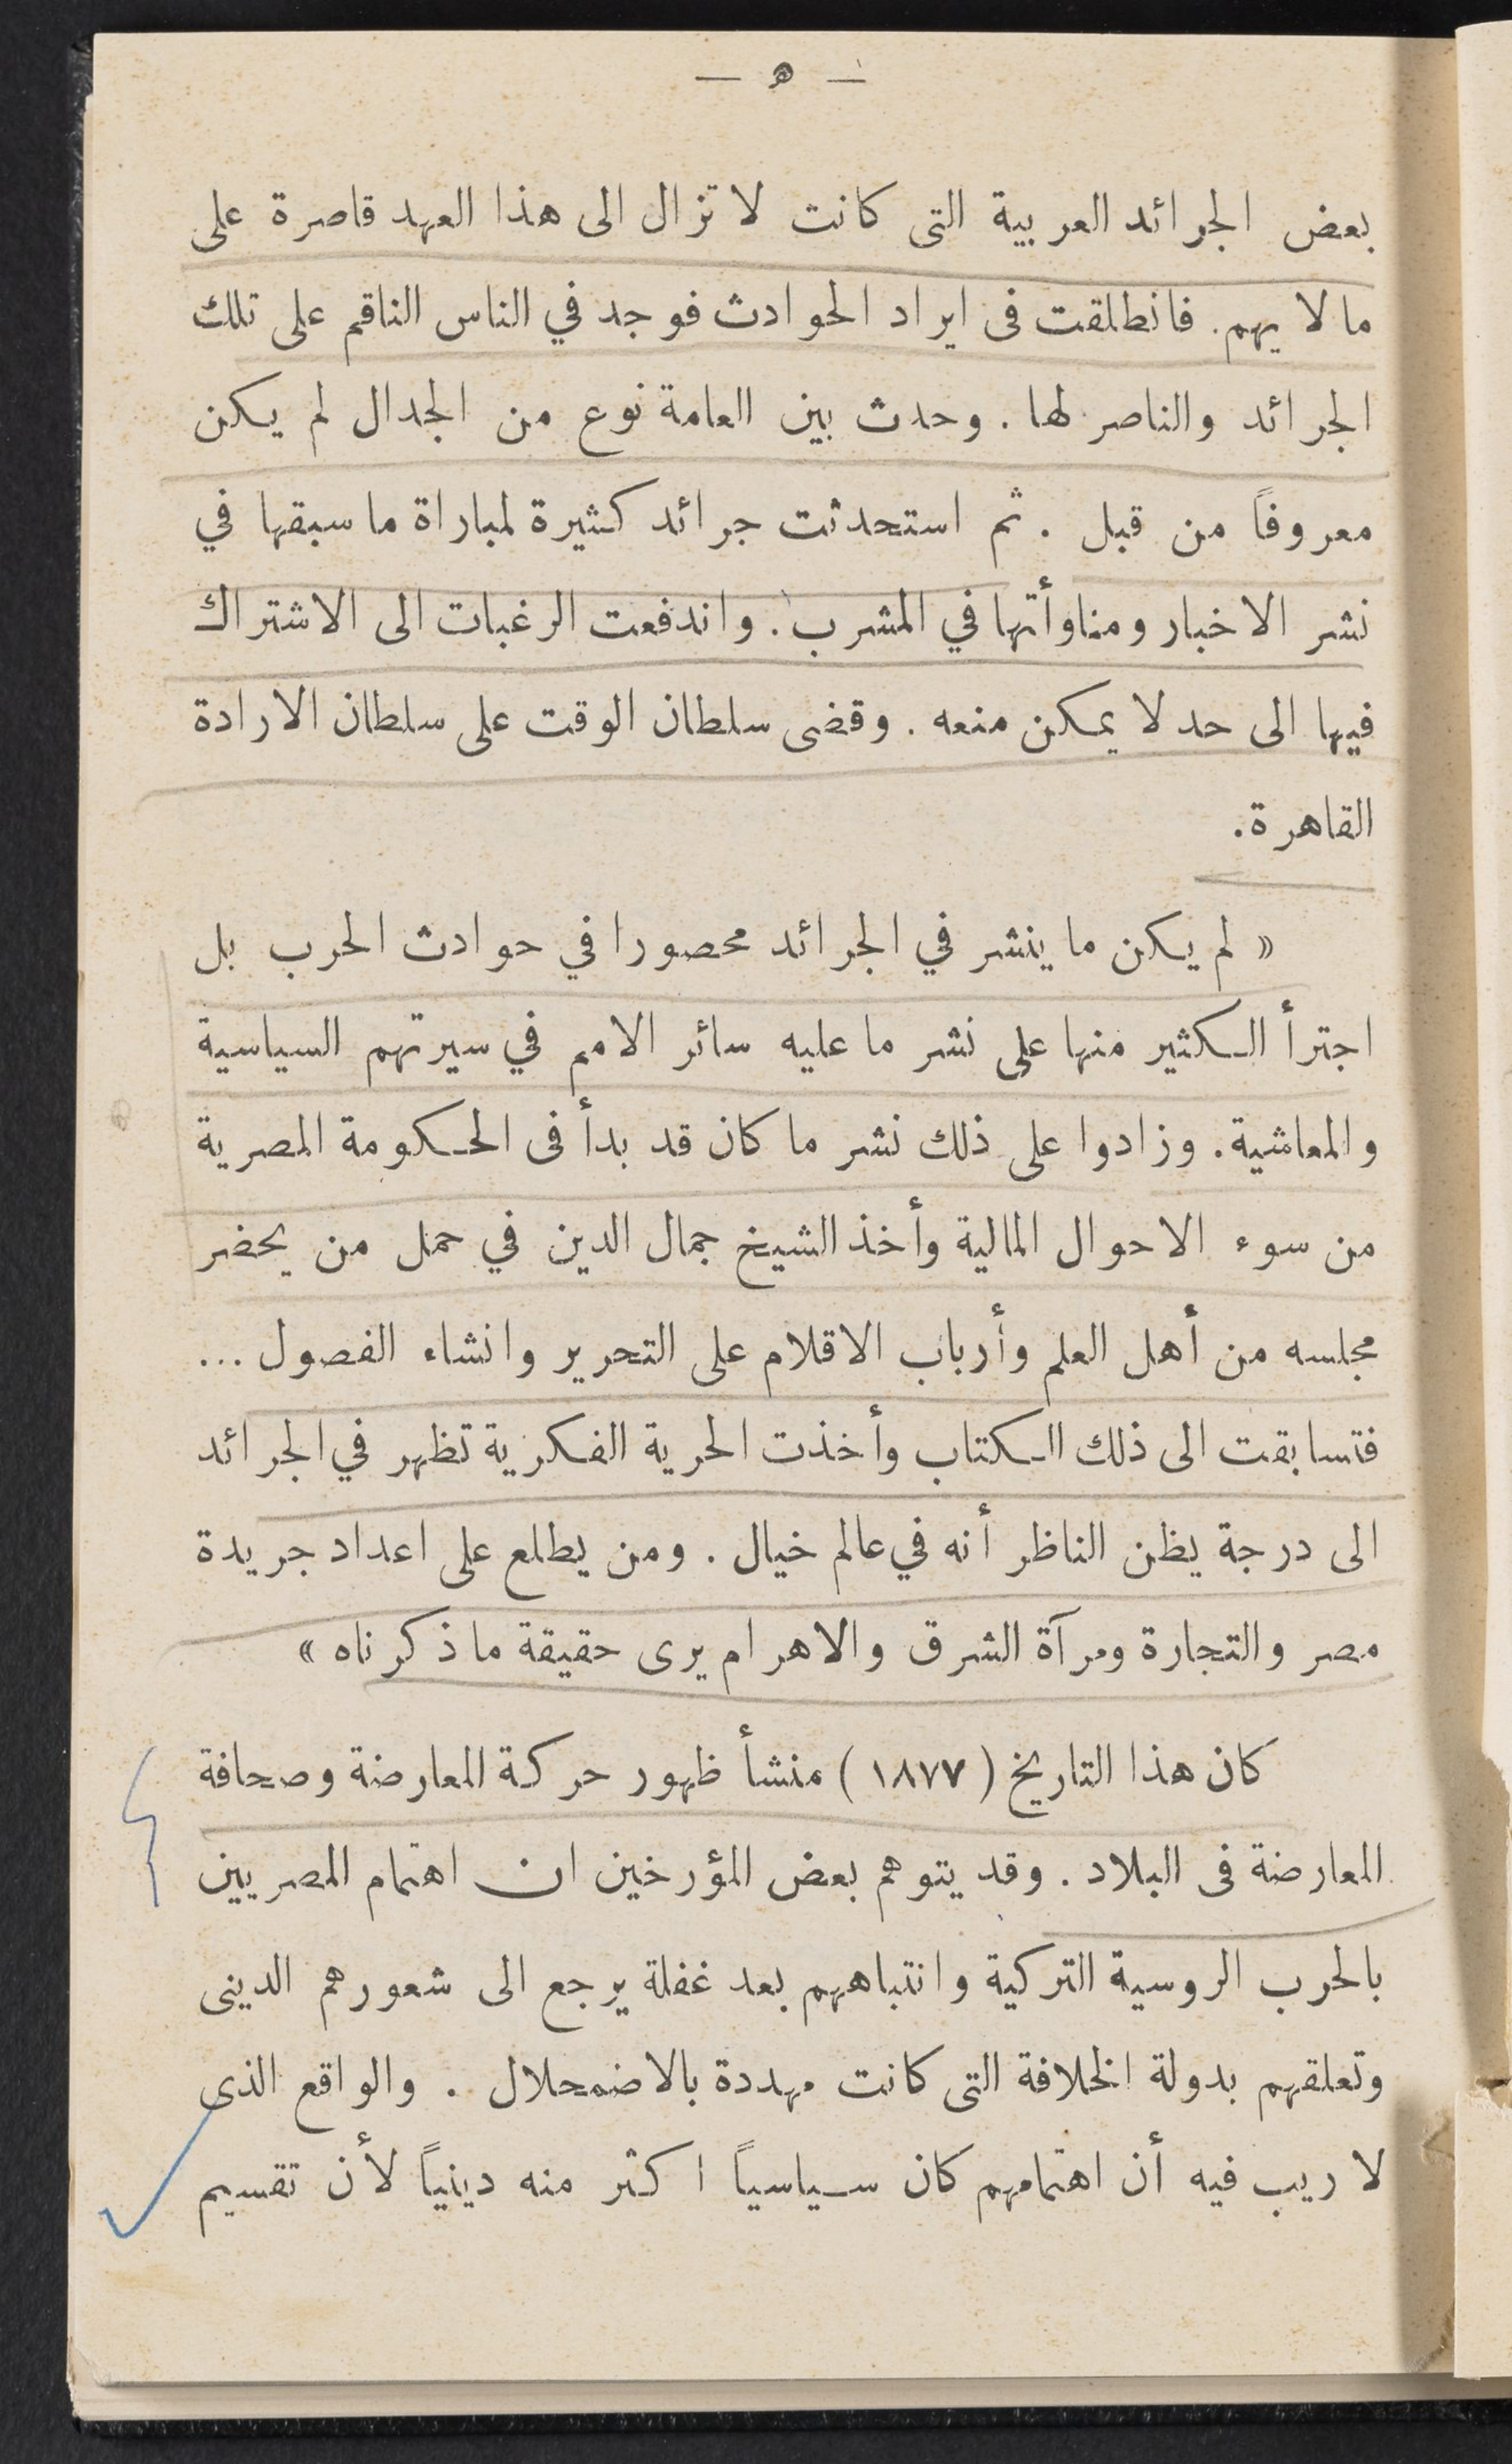 — ه —
بعض الجرائد العربية التى كانت لا تزال الى هذا العهد قاصرة على
مالا يهم. فانطلقت فى ايراد الحوادث فوجد في الناس الناقم على تلك
الجرائد والناصر لها. وحدث بين العامة نوع من الجدال لم يكن
معروفاً من قبل. ثم استحدثت جرائد كثيرة لمباراة ما سبقها في
نشر الاخبار ومناوأتها في المشرب. واندفعت الرغبات الى الاشتراك
فيها الى حد لا يمكن منعه. وقضى سلطان الوقت على سلطان الارادة
القاهرة.
« لم يكن ما ينشر في الجرائد محصورا في حوادث الحرب بل
اجترأ الكثير منها على نشر ما عليه سائر الامم في سيرتهم السياسية
والمعاشية. وزادوا على ذلك نشر ما كان قد بدأ فى الحكومة المصرية
من سوء الاحوال المالية وأخذ الشيخ جمال الدين في حمل من يحضر
مجلسه من أهل العلم وأرباب الاقلام على التحرير وانشاء الفصول ...
فتسابقت الى ذلك الكتاب وأخذت الحرية الفكرية تظهر في الجرائد
الى درجة يظن الناظر أنه في عالم خيال. ومن يطلع على اعداد جريدة
مصر والتجارة ومرآة الشرق والاهرام يرى حقيقة ما ذكرناه »
كان هذا التاريخ (١٨٧٧) منشأ ظهور حركة المعارضة وصحافة
المعارضة فى البلاد. وقد يتوهم بعض المؤرخين ان اهتمام المصريين
بالحرب الروسية التركية وانتباههم بعد غفلة يرجع الى شعورهم الدينى
وتعلقهم بدولة الخلافة التى كانت مهددة بالاضمحلال. والواقع الذى
لا ريب فيه أن اهتمامهم كان سياسياً اكثر منه دينياً لأن تقسيم